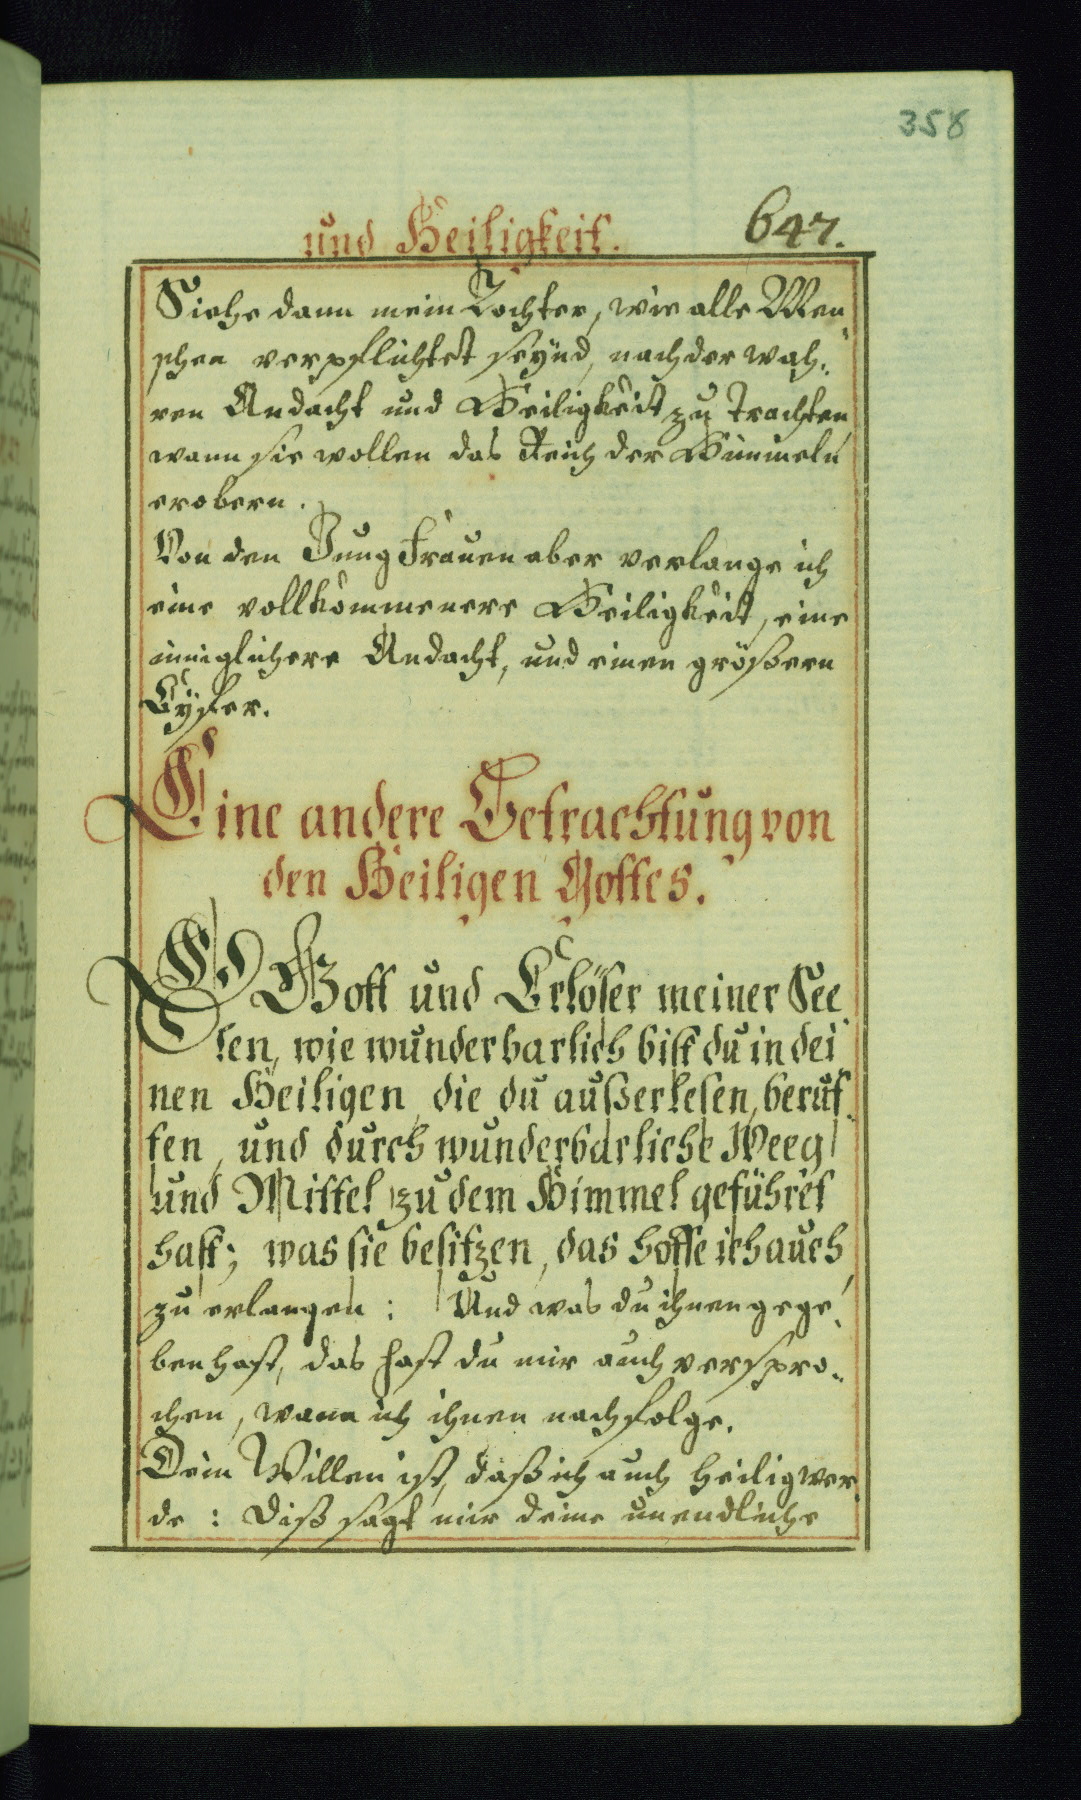 358
und Heiligkeit. 647.
Siehe dann mein Tochter, wie alle Men„
schen verpflichtet seÿnd, nach der wah„
ren Andacht und Heiligkeit zu trachten,
wann sie wollen das Reich der Himmeln
erobern.
Von den Jungfrauen aber verlange ich
eine vollkommenere Heiligkeit, eine
inniglichere Andacht, und einen größern
Eÿfer.
Eine andere Betrachtung von
den Heiligen Gottes.
O Gott und Erlöser meiner See
len, wie wunderbarlich bist du in dei
nen Heiligen, die du außerlesen, beruf
fen, und durch wunderbarliche Weeg
und Mittel zu dem Himmel geführet
hast; was sie besitzen, das hoffe ich auch
zu erlangen: Und was du ihnen gege„
ben hast, das hast du mir auch verspro„
chen, wann ich ihnen nachfolge.
Dein Willen ist, daß ich auch heilig wer
de: Diß sagt mir deine unendliche